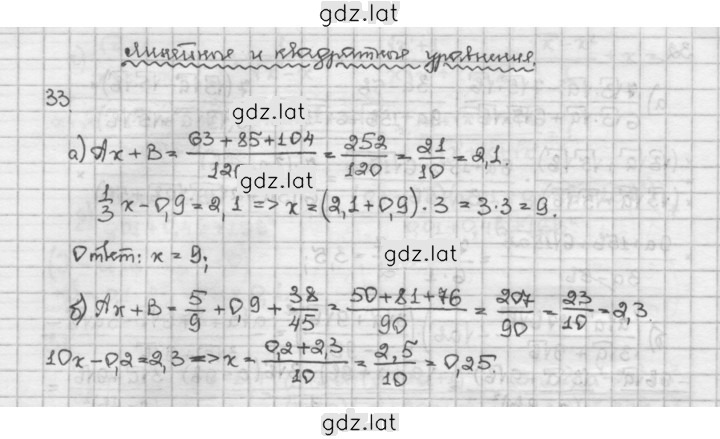 gdz.lat
Линейные и квадратные уравнения.
33.
gdz.lat
а) Ax + B = (63 + 85 + 104)/120 = 252/120 = 21/10 = 2,1.
gdz.lat
1/3 x - 0,9 = 2,1 => x = (2,1 + 0,9) · 3 = 3 · 3 = 9.
Ответ: x = 9;
gdz.lat
б) Ax + B = 5/9 + 0,9 + 38/45 = (50 + 81 + 76)/90 = 207/90 = 23/10 = 2,3.
10x - 0,2 = 2,3 => x = (0,2 + 2,3)/10 = 2,5/10 = 0,25.
gdz.lat
gdz.lat